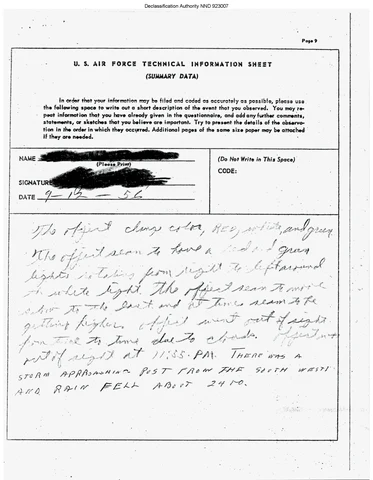 Declassification Authority NND 923007
Page 9
U. S. AIR FORCE TECHNICAL INFORMATION SHEET
(SUMMARY DATA)
In order that your information may be filed and coded as accurately as possible, please use
the following space to write out a short description of the event that you observed. You may re-
peat information that you have already given in the questionnaire, and add any further comments,
statements, or sketches that you believe are important. Try to present the details of the observa-
tion in the order in which they occurred. Additional pages of the same size paper may be attached
if they are needed.
NAME
(Please Print)
(Do Not Write in This Space)
CODE:
SIGNATURE
DATE 9-12-56
The object change color, RED, white, and green
The object seem to have a red and green
lights rotating from right to left around
a white light. The object seem to move
slow to the East and at times seem to be
getting higher. object went out of sight
from time to time due to clouds. Object
out of sight at 11:35. PM. THERE WAS A
STORM APPROACHING POST FROM THE SOUTH WEST
AND RAIN FELL ABOUT 2400.